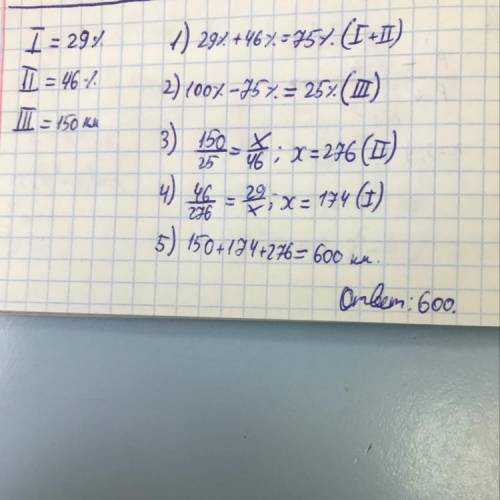 I = 29%
II = 46%
III = 150 км
1) 29% + 46% = 75% (I + II)
2) 100% - 75% = 25% (III)
3) 150/25 = x/46 ; x = 276 (II)
4) 46/276 = 29/x ; x = 174 (I)
5) 150 + 174 + 276 = 600 км.
Ответ: 600.